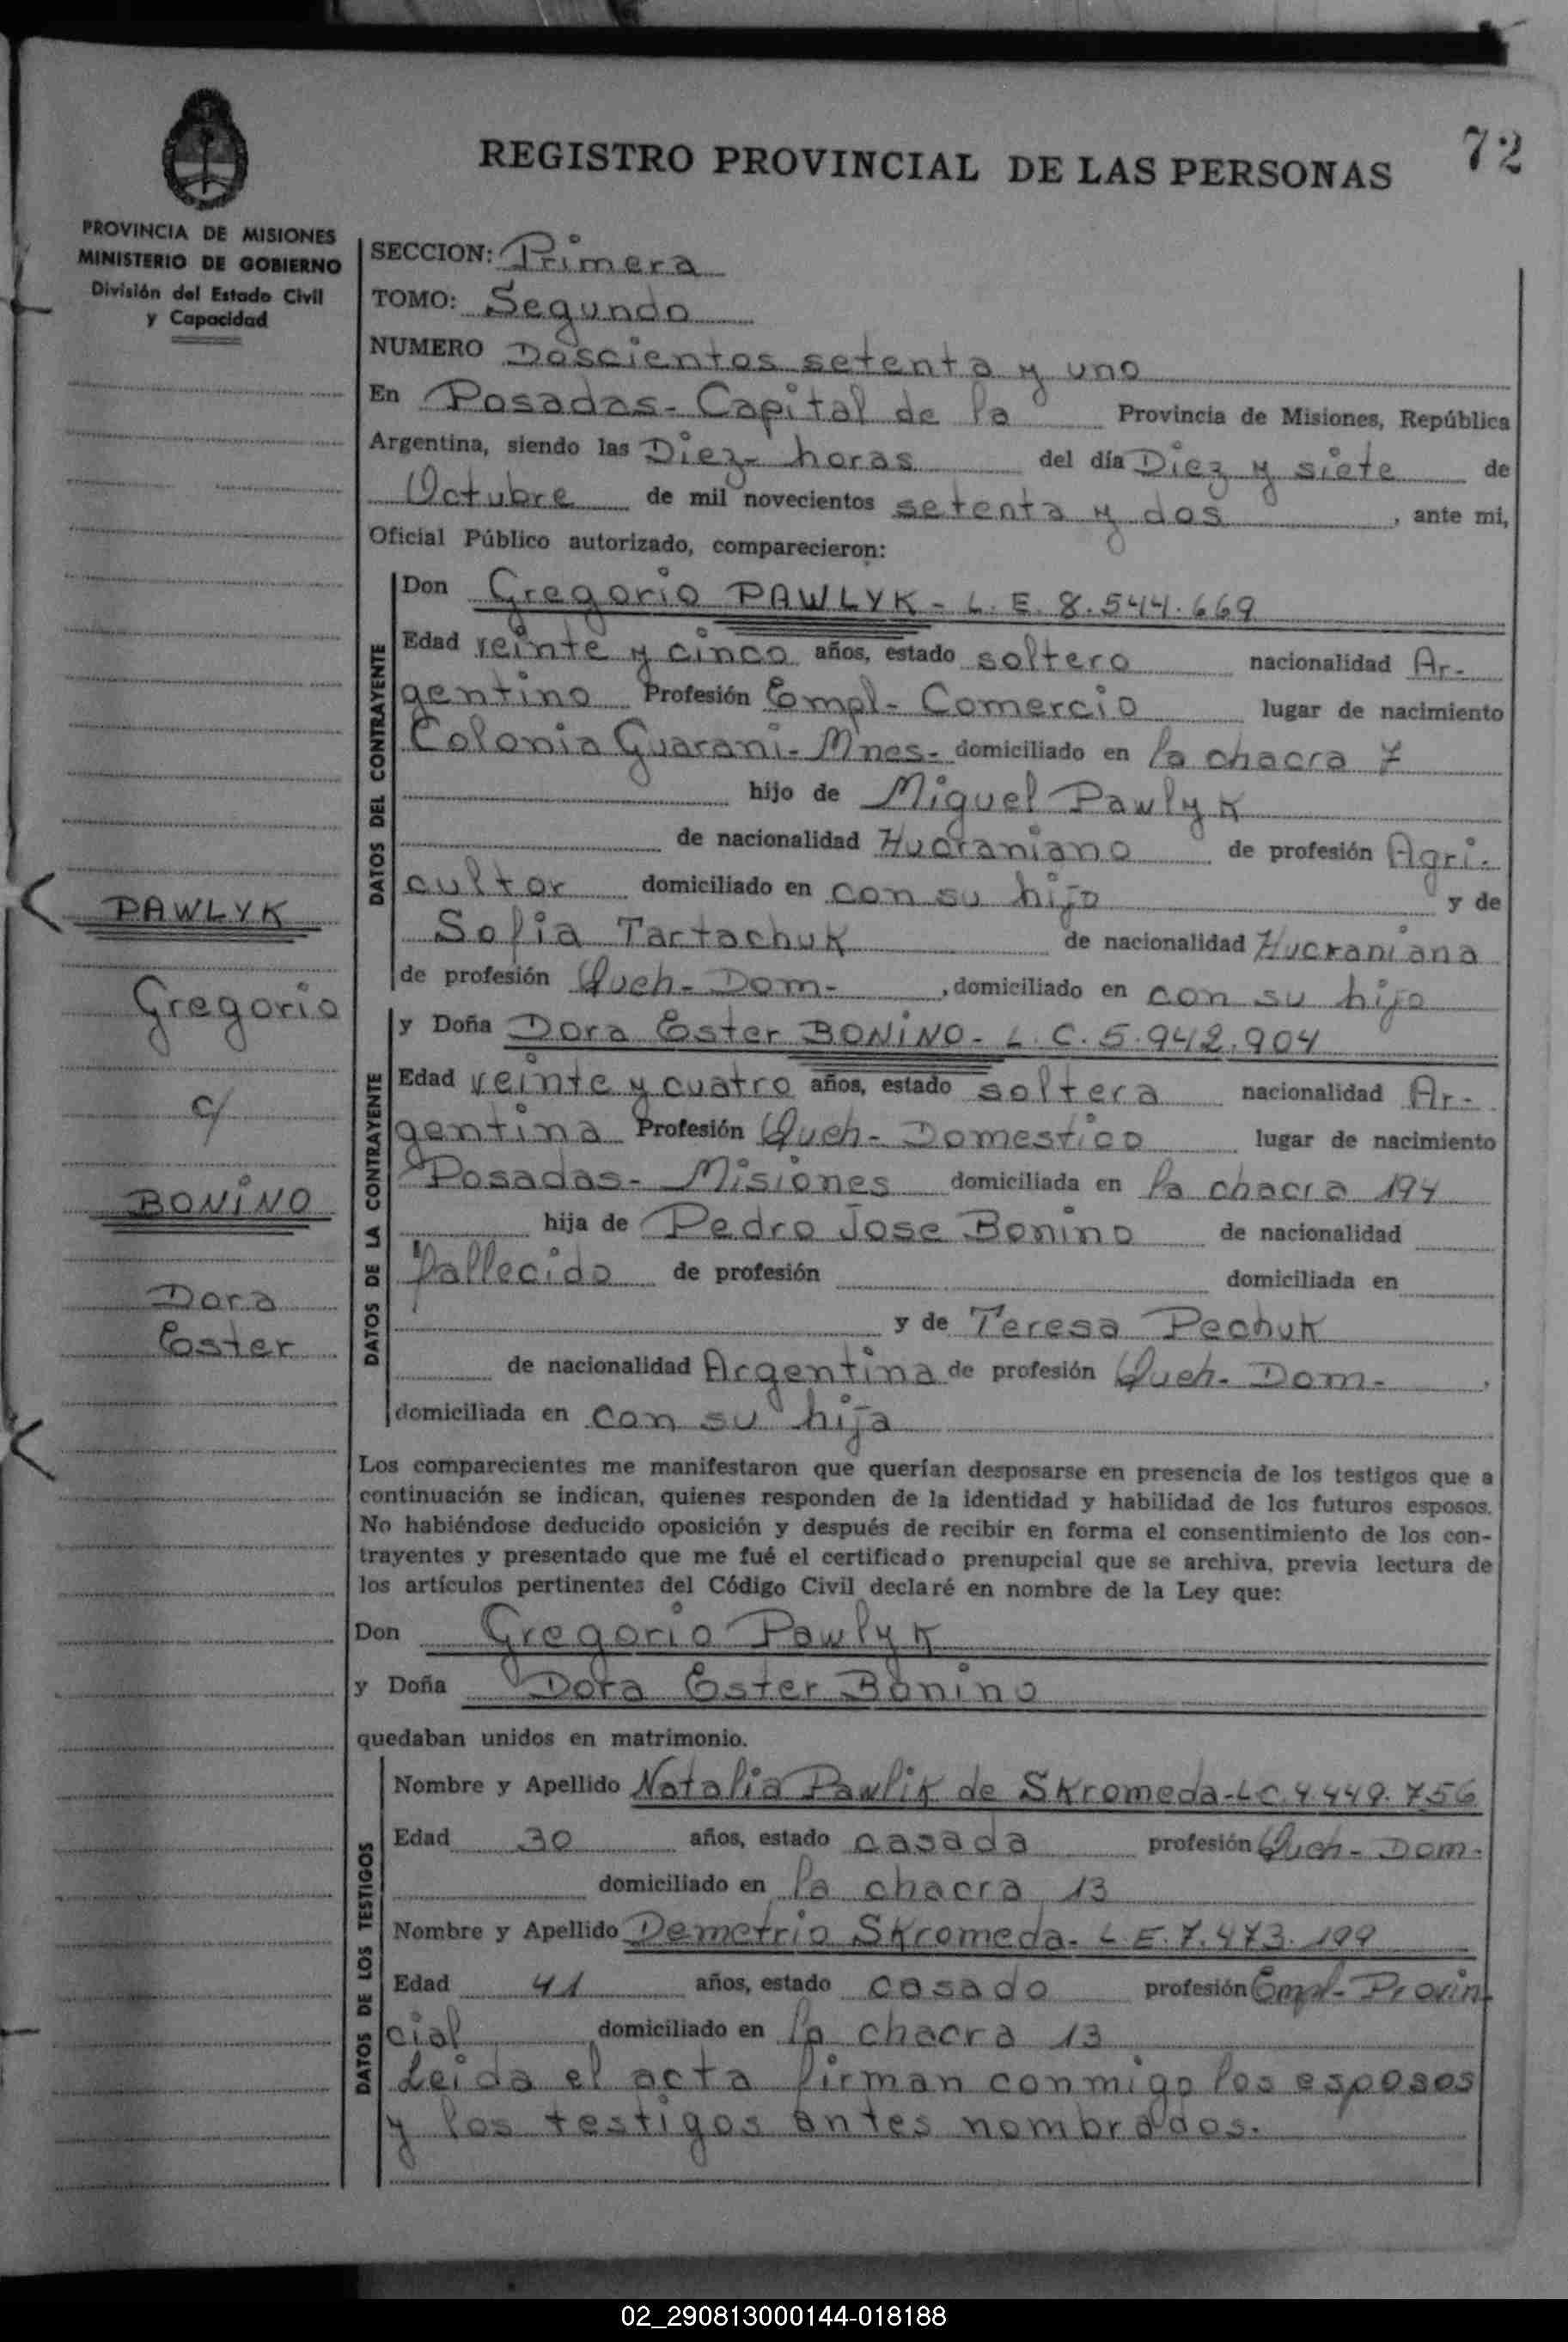 72
REGISTRO PROVINCIAL DE LAS PERSONAS
PROVINCIA DE MISIONES
MINISTERIO DE GOBIERNO
División del Estado Civil
y Capacidad
SECCION: Primera
TOMO: Segundo
NUMERO Doscientos setenta y uno
En Posadas - Capital de la Provincia de Misiones, República
Argentina, siendo las Diez - horas del día Diez y siete de
Octubre de mil novecientos setenta y dos, ante mi,
Oficial Público autorizado, comparecieron:
DATOS DEL CONTRAYENTE
Don Gregorio PAWLYK - L. E. 8.544.669
Edad veinte y cinco años, estado soltero nacionalidad Ar-
gentino Profesión Empl - Comercio lugar de nacimiento
Colonia Guarani - Mnes - domiciliado en la chacra 7
hijo de Miguel Pawlyk
de nacionalidad Hucraniano de profesión Agri-
cultor domiciliado en con su hijo y de
Sofia Tartachuk de nacionalidad Hucraniana
de profesión Queh - Dom -, domiciliado en con su hijo
DATOS DE LA CONTRAYENTE
y Doña Dora Ester BONINO - L. C. 5.942.904
Edad veinte y cuatro años, estado soltera nacionalidad Ar-
gentina Profesión Queh - Domestico lugar de nacimiento
Posadas - Misiones domiciliada en la chacra 194
hija de Pedro Jose Bonino de nacionalidad
fallecido de profesión domiciliada en
y de Teresa Pechuk
de nacionalidad Argentina de profesión Queh - Dom -,
domiciliada en con su hija
PAWLYK
Gregorio
c/
BONINO
Dora
Ester
Los comparecientes me manifestaron que querían desposarse en presencia de los testigos que a
continuación se indican, quienes responden de la identidad y habilidad de los futuros esposos.
No habiéndose deducido oposición y después de recibir en forma el consentimiento de los con-
trayentes y presentado que me fué el certificado prenupcial que se archiva, previa lectura de
los artículos pertinentes del Código Civil declaré en nombre de la Ley que:
Don Gregorio Pawlyk
y Doña Dora Ester Bonino
quedaban unidos en matrimonio.
DATOS DE LOS TESTIGOS
Nombre y Apellido Natalia Pawlik de Skromeda - L C 4.449.756
Edad 30 años, estado casada profesión Queh - Dom -
domiciliado en la chacra 13
Nombre y Apellido Demetrio Skromeda - L E. 7.473.199
Edad 41 años, estado casado profesión Empl - Provin
cial domiciliado en la chacra 13
Leida el acta firman conmigo los esposos
y los testigos antes nombrados.
02_290813000144-018188